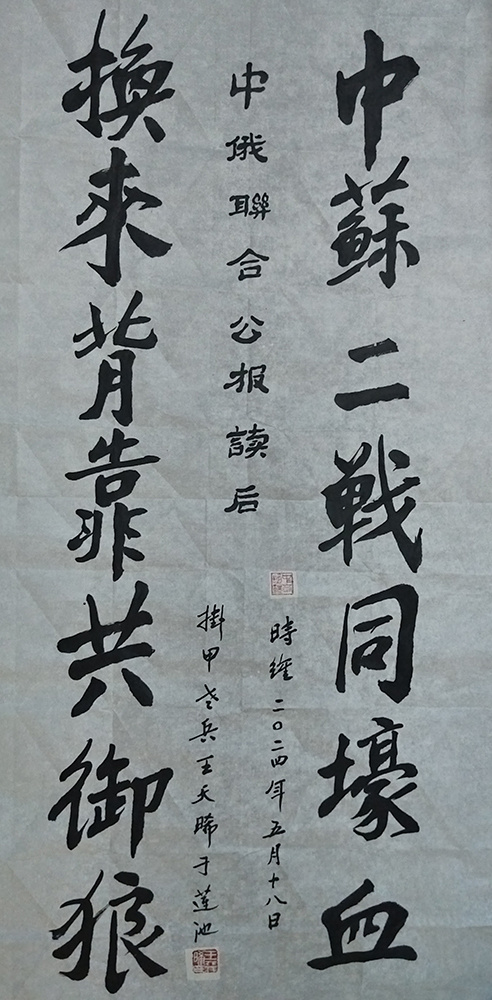 中蘇二戰同壕血
中俄聯合公报讀后
換來背靠共御狼
時維二〇二四年五月十八日
掛甲老兵王天晞于蓮池